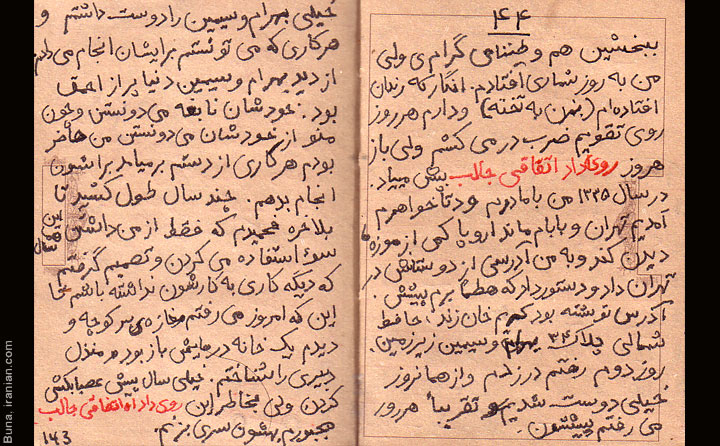 ۴۴
ببخشین هم وطنمی گرامی ولی
من به روز شماری افتادم. انگار که زندان
افتاده‌ام (بزنن به تخته) و دارم هر روز
روی تقویم ضرب در می کشم ولی باز
هر روز روی داد اتفاقی جالب پیش میاد.
در سال ۱۳۲۵ من با مادرم و دوتا خواهرم
آمدیم تهران و بابام ماند اروپا کمی از موزه ها
دیدن کند و به من آدرسی از دوستانش در
تهران داد و دستور داد که حتماً برم پیشش.
آدرس نوشته بود کریم خان زند، حافظ
شمالی پلاک ۳۴ بهرام و سیمین زیرزمین.
روز دوم رفتم در زدم و از همانروز
خیلی دوست شدیم و تقریباً هر روز
می رفتم پیششون.
خیلی بهرام و سیمین را دوست داشتم و
هر کاری که می تونستم برایشان انجام می دادم
از دید بهرام و سیمین دنیا پر از احمق
بود. خودشان نابغه می دونستن و چون
منو از خودشان می دونستن من حاضر
بودم هر کاری از دستم برمیاد براشون
انجام بدهم. چند سال طول کشید تا
بلاخره فهمیدم که فقط از من داشتن
این ۵ سال
سوء استفاده می کردن و تصمیم گرفتم
که دیگه کاری به کارشون نداشته باشم تا
این که امروز می رفتم مغازه‌ی سر کوچه و
دیدم یک خانه در مایش باز بود و منزل
دبیری را شناختم. خیلی سال پیش عصبانیشی
کردن ولی بخاطر این روی داد اتفاقی جالب
مجبورم بهشون سری بزنم.
143
Buna, iranian.com